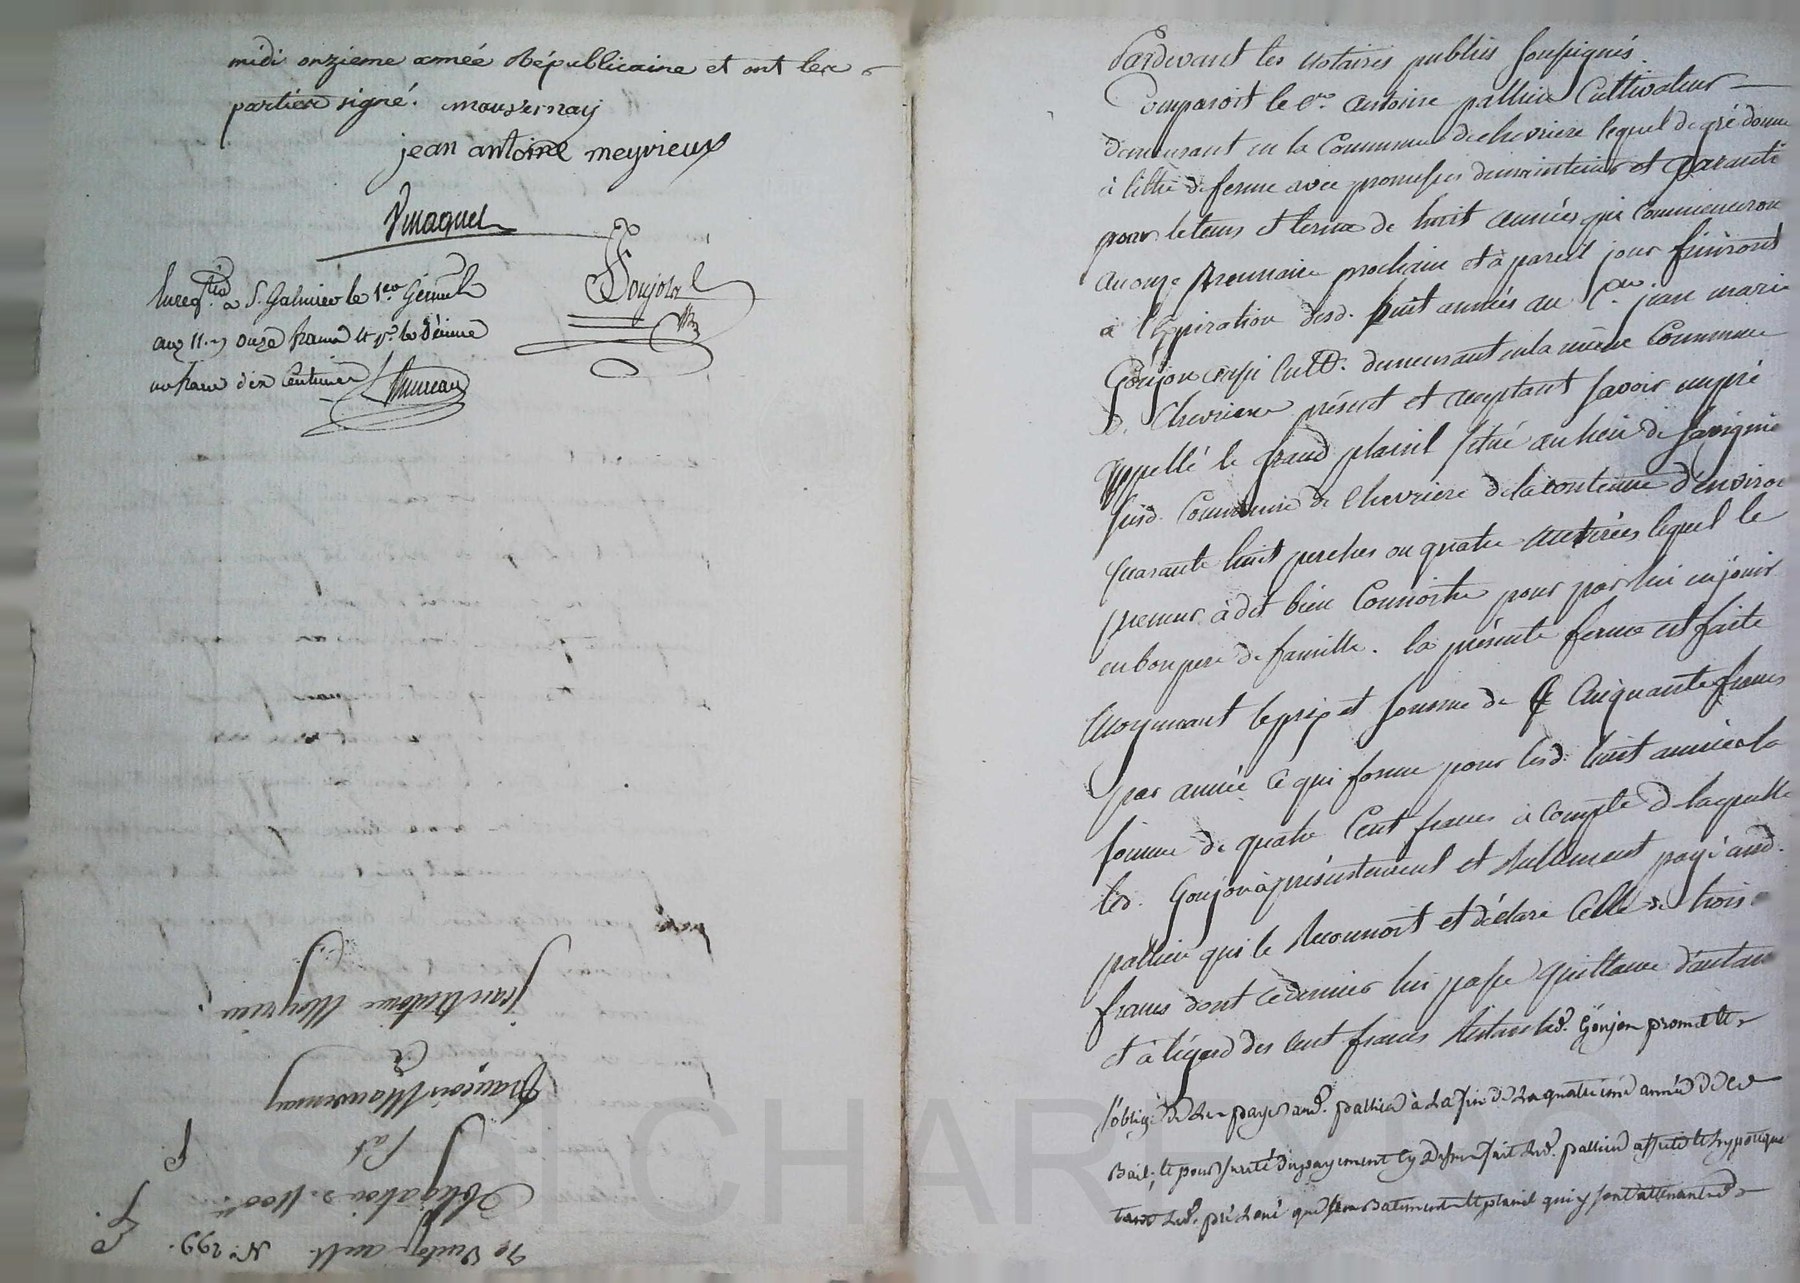 midi onzieme année Républicaine et ont les
parties signé. mauvernay
jean antoine meyrieux
Vmaguet
Goujon
à St. Galmier le 1er Germ
onze francs
un franc dix Centimes
jean Antoine Meyrieu
françois Mauvernay
Obligation d. 1100
N.° 299.
Pardevant les notaires publics soussignés.
Comparoit le Cen. antoine pallieu Cultivateur
demeurant en la Commune de chevriere lequel de gré donne
à titre de ferme avec promesses de maintenir et garantir
pour le tems et terme de huit années qui Commenceront
au onze Brumaire prochain et à pareil jour finiront
à l'Expiration desd. huit années au Cen. jean marie
Goujon aussi Cultr. demeurant en la même Commune
de Chevriere présent et acceptant savoir un pré
appellé le grand plainil situé au lieu de Savignie
susd. Commune de Chevriere de la contenue d'environ
quarante huit perches ou quatre lequel le
preneur à dit bien Connoitre pour par lui en jouir
en bon pere de famille. la présente ferme est faite
Moyennant le prix et somme de Cinquante francs
par année ce qui forme pour lesd. huit années la
somme de quatre Cent francs à compte de laquelle
led. Goujon à présentement et réellement payé aud.
pallieu qui le reconnoit et déclare Celle de trois
francs dont ce dernier lui passe quittance d'autant
et à l'égard des Cent francs restans led. Goujon promet et
s'oblige de les payer aud. pallieu à la fin de la quatrieme année de ce
Bail; et pour sureté du payement led. pallieu affecte et hypoteque
tant led. pré que son Batiment et plainil qui y sont attenants